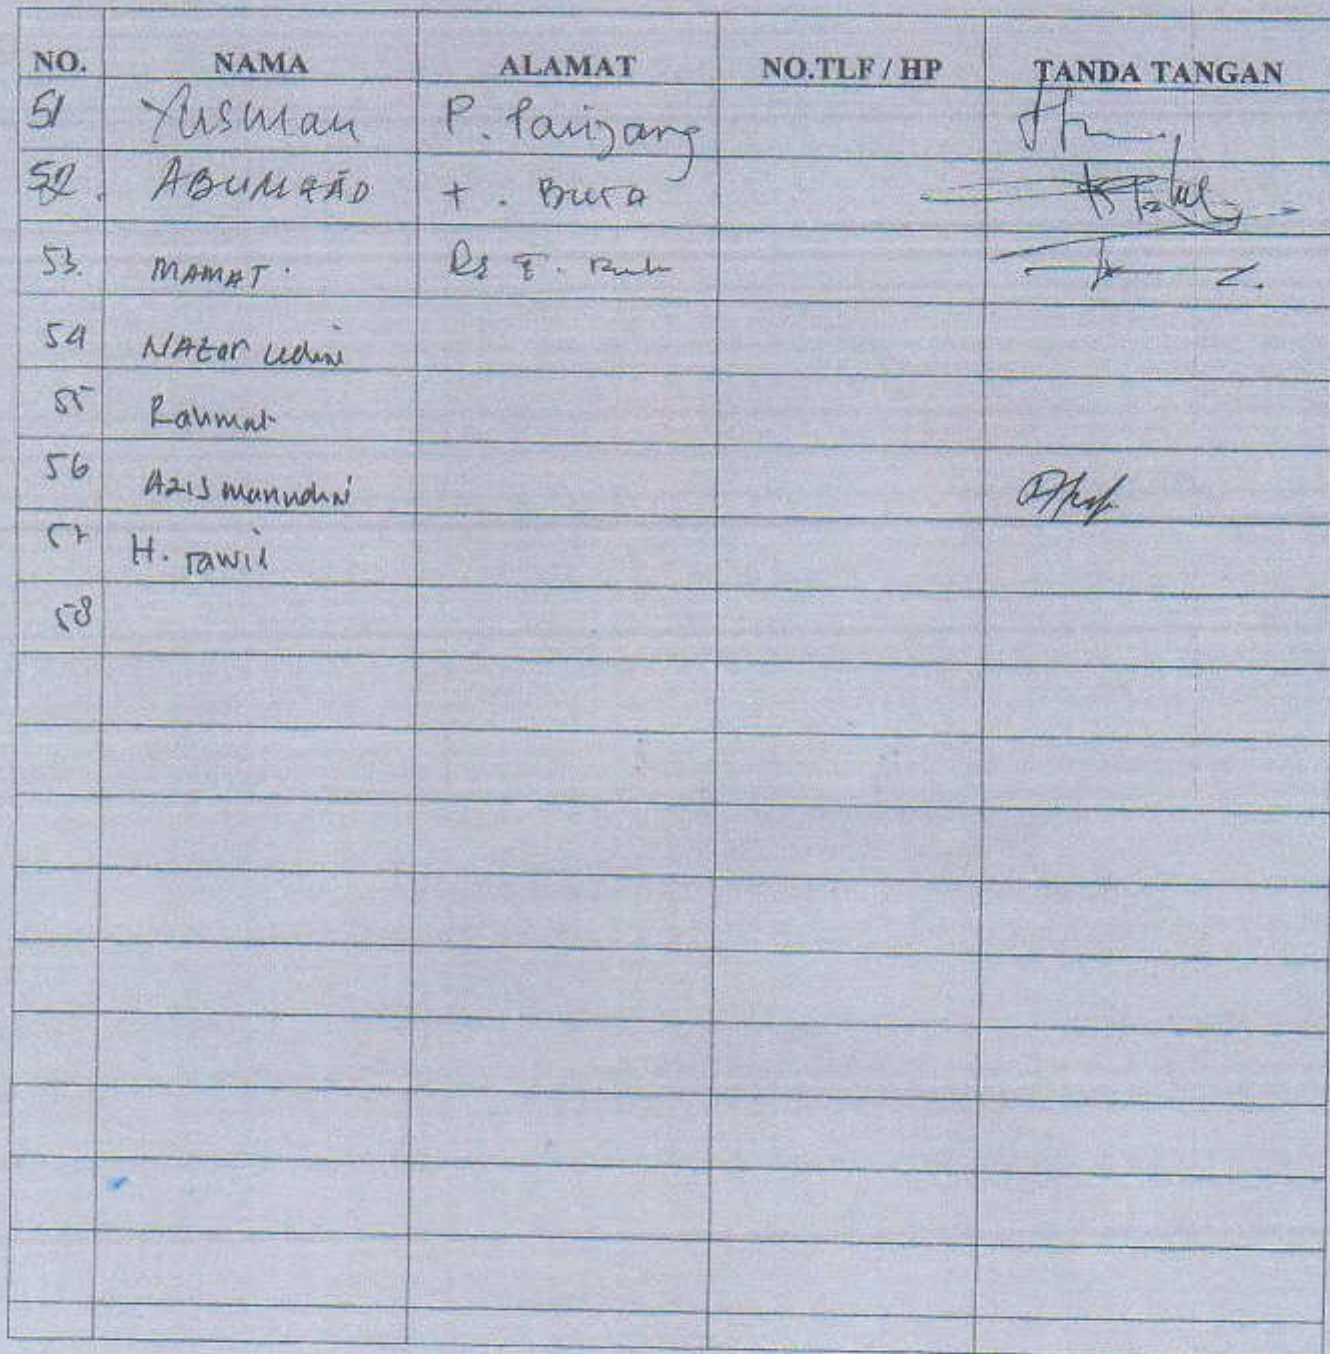 NO. NAMA ALAMAT NO.TLF / HP TANDA TANGAN
51 Yusman P. Panjang
52. ABUMZAD T. Buta
53. MAMAT. Ds
54 NAZAR udini
55 Rahmat
56 AZIS
57 H. TAWIL
58